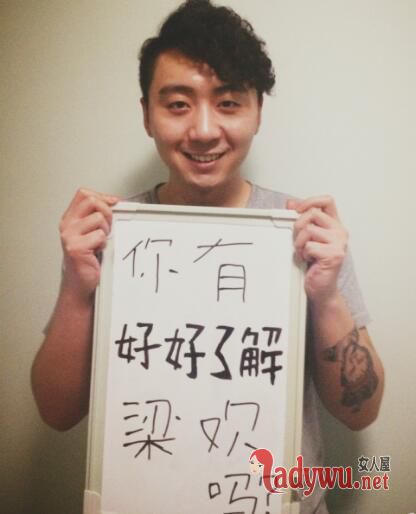 你有
好好了解
梁欢
吗?
女人屋
ladywu.net